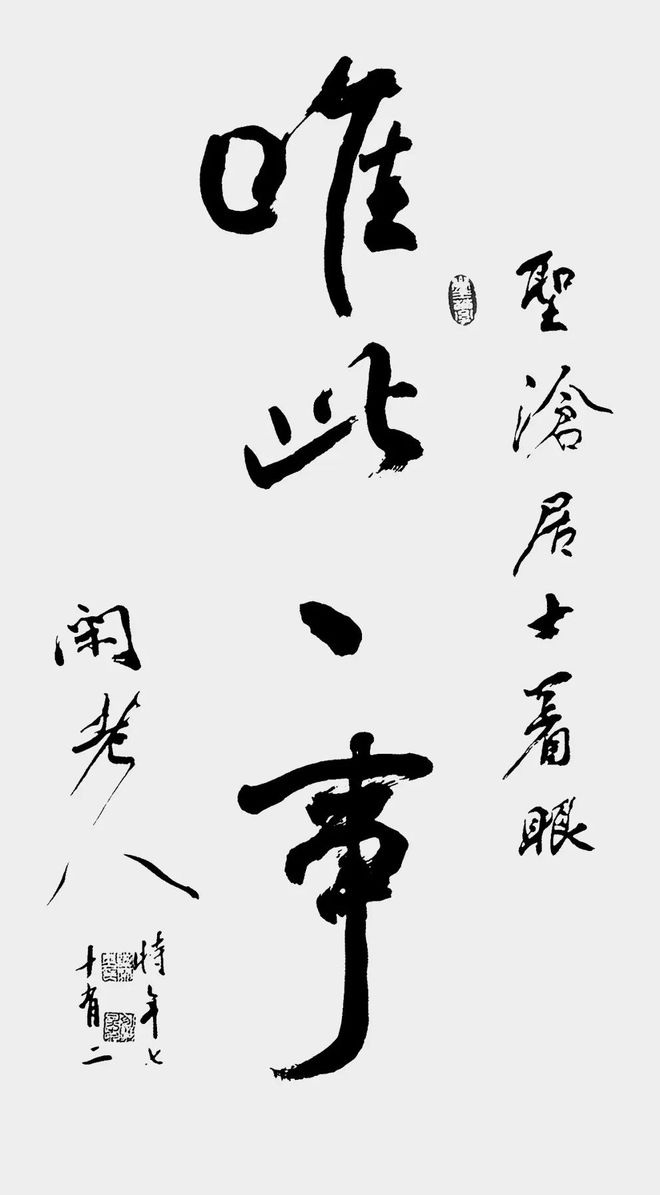 聖滄居士着眼
唯此一事
閑老人
時年七
十有二